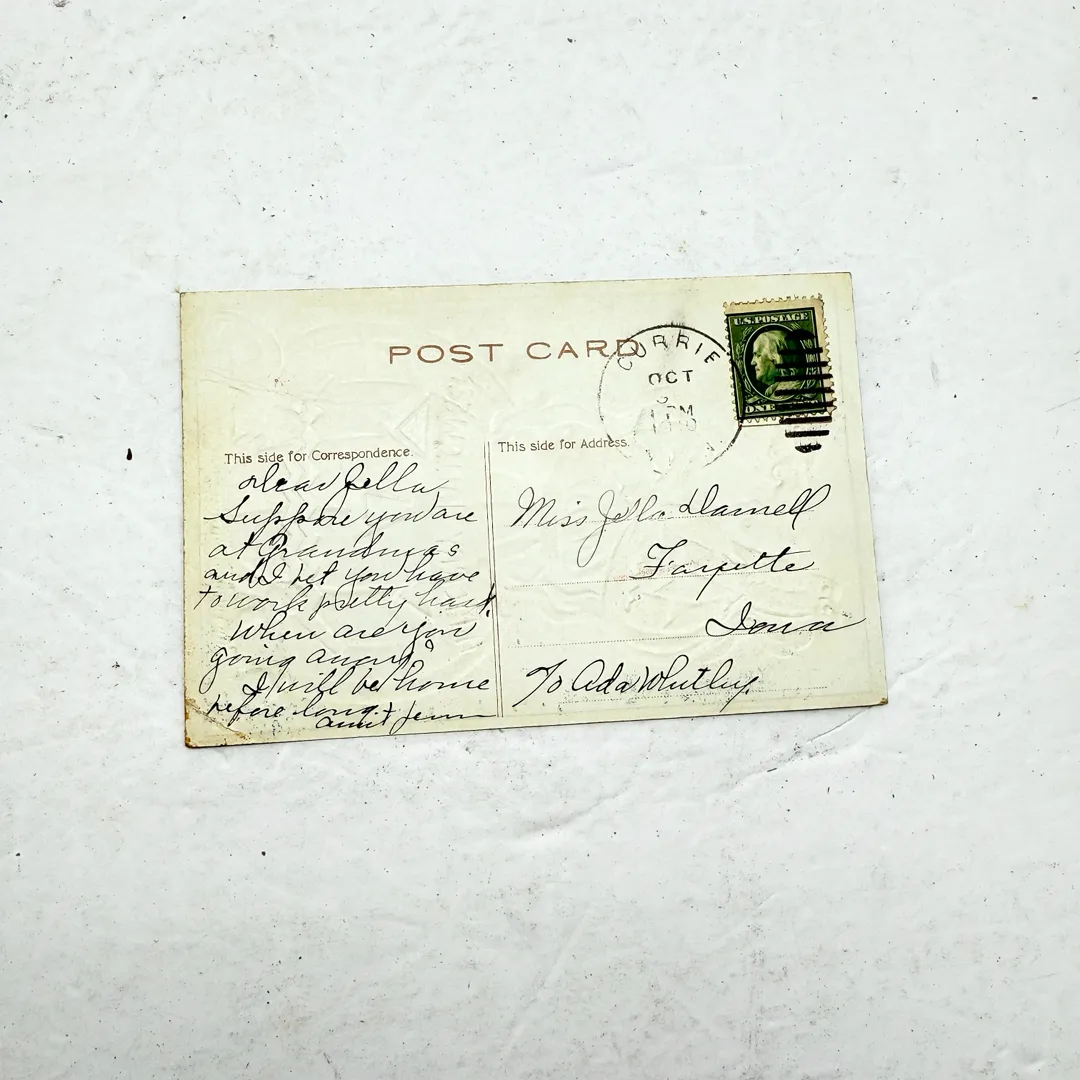 POST CARD
CURRIE
OCT
1 PM
1910
U.S. POSTAGE
ONE
This side for Correspondence.
Dear Jella
Suppose you are
at Grandmas
and I bet you have
to work pretty hard.
When are you
going away?
I will be home
before long.
aunt Jenn
This side for Address.
Miss Jella Darnell
Fayette
Iowa
℅ Ada Whitley.